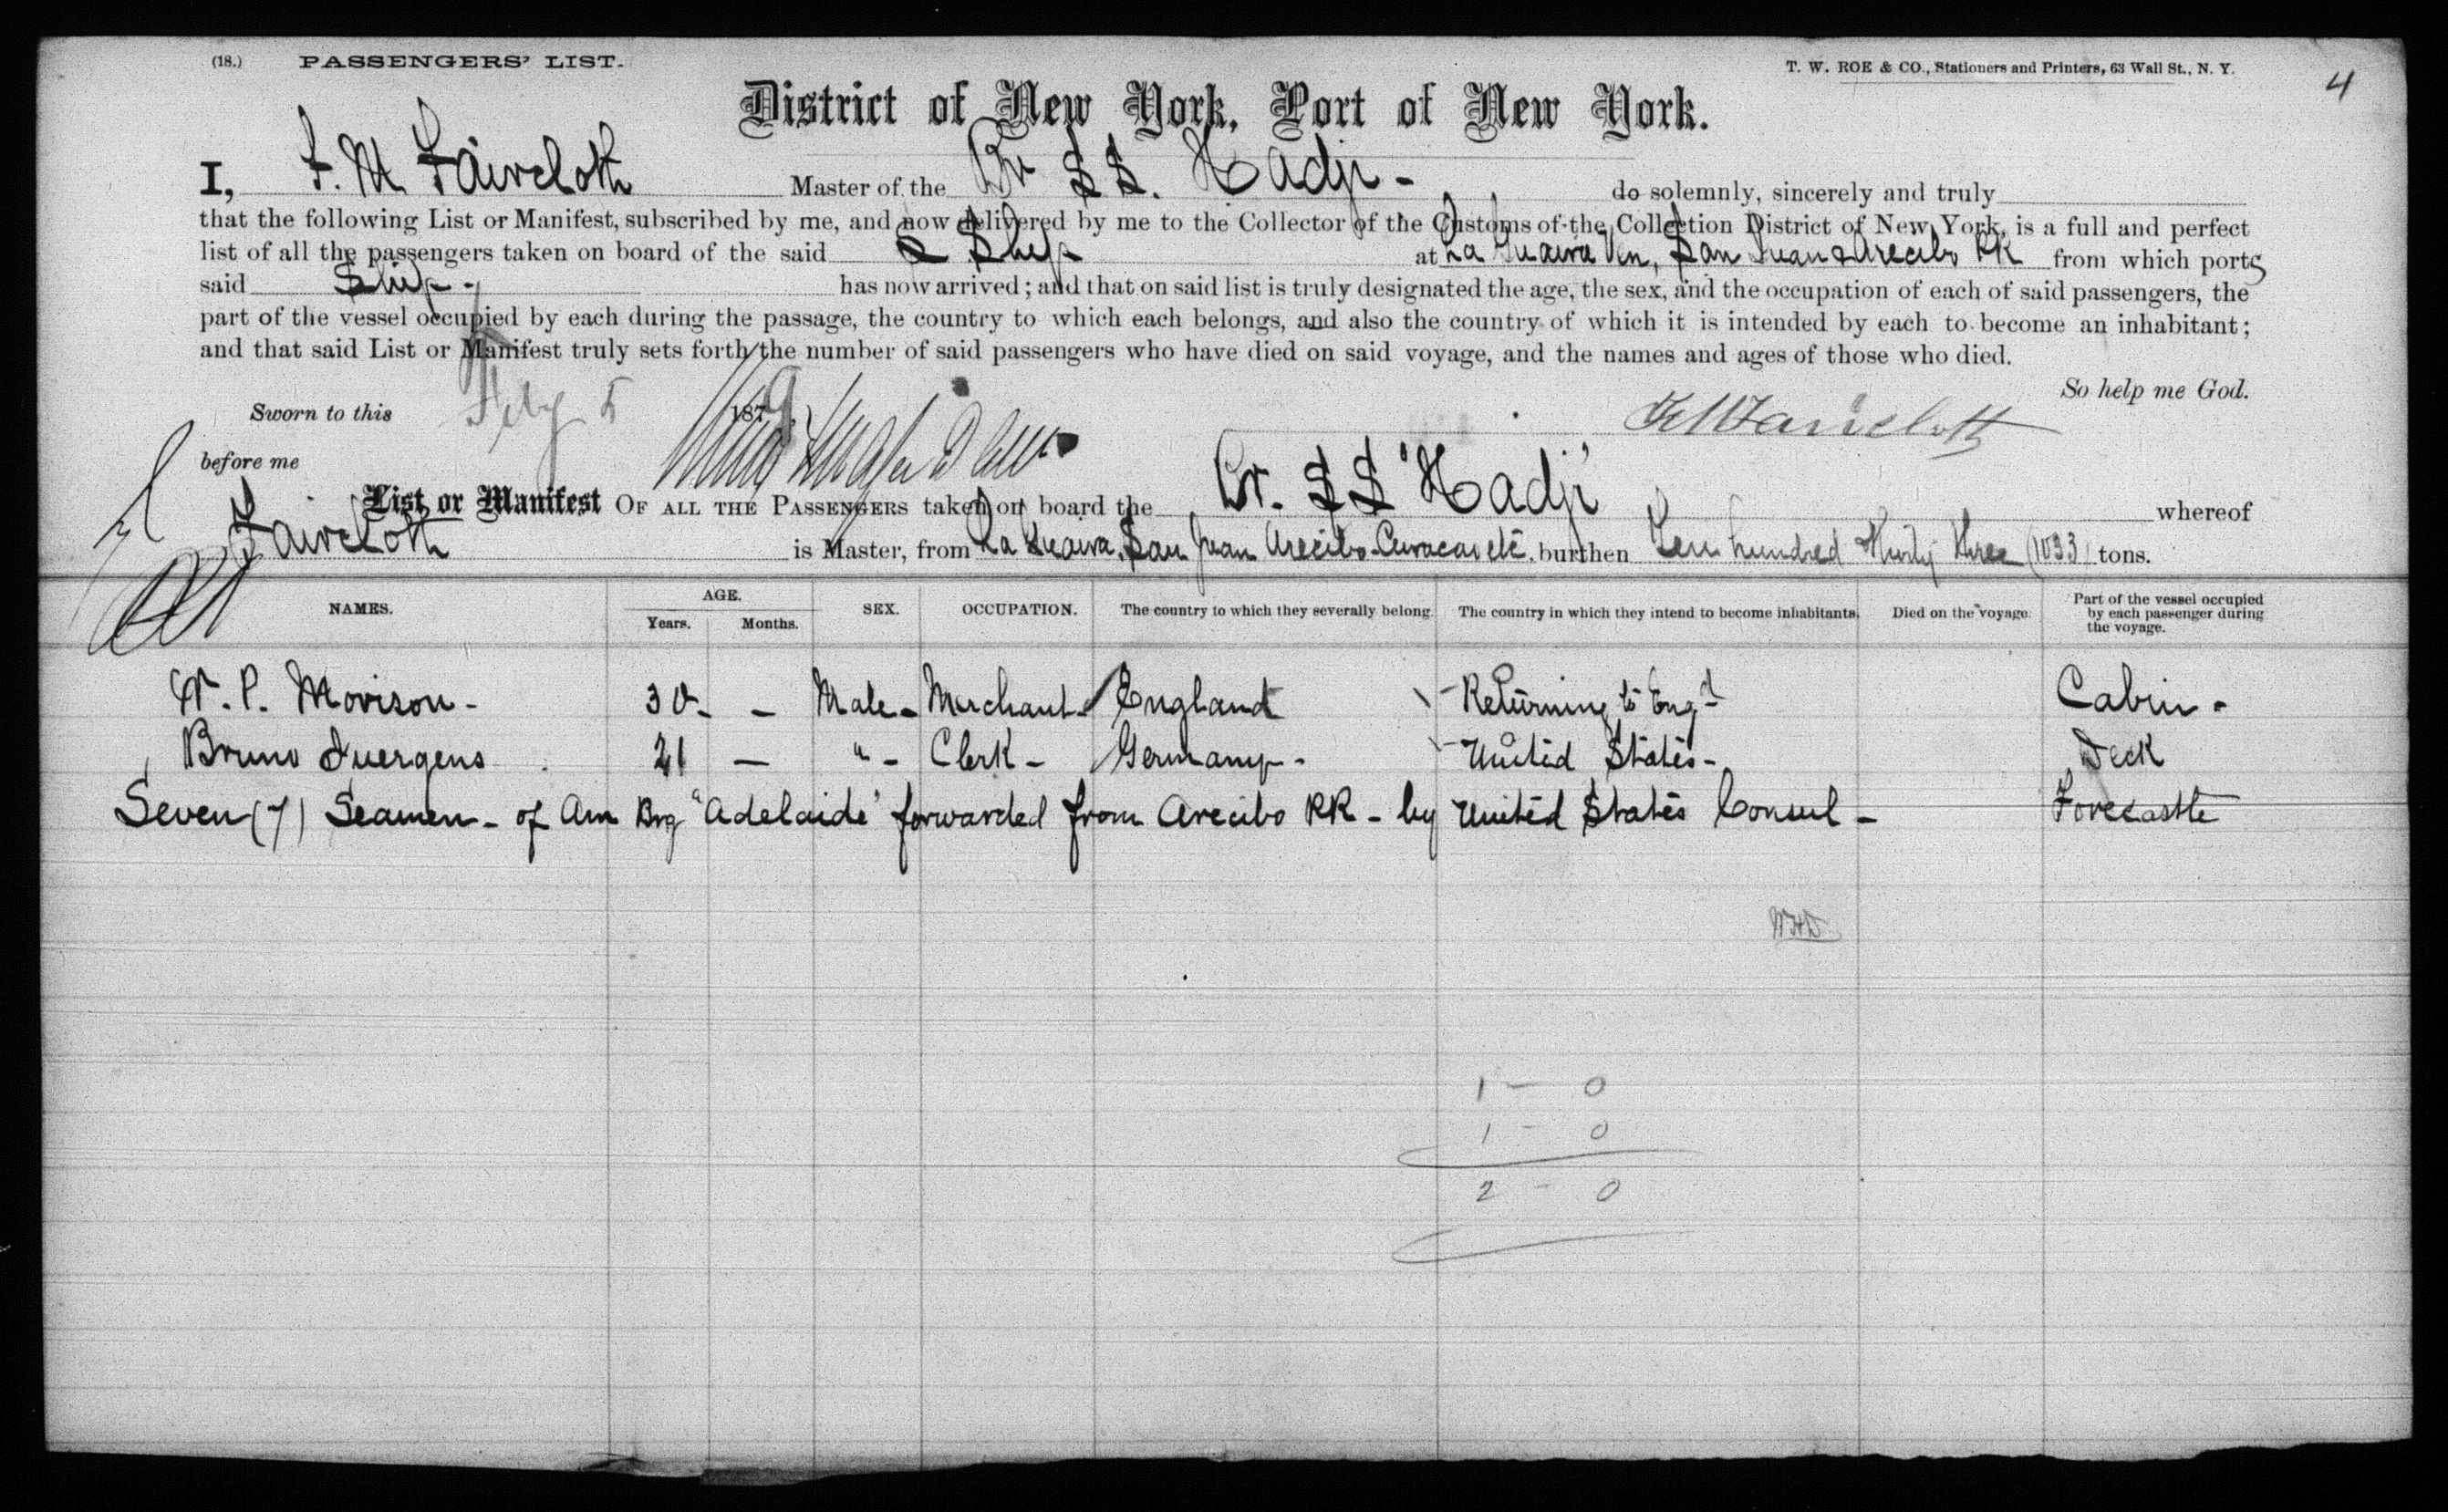 (18.) PASSENGERS' LIST.
T. W. ROE & CO., Stationers and Printers, 63 Wall St., N. Y.
4
District of New York, Port of New York.
I, F. M Faircloth Master of the Br SS. Hadji - do solemnly, sincerely and truly
that the following List or Manifest, subscribed by me, and now delivered by me to the Collector of the Customs of the Collection District of New York, is a full and perfect
list of all the passengers taken on board of the said S Ship at La Guaira Ven, San Juan & Arecibo PR from which ports
said Ship - has now arrived; and that on said list is truly designated the age, the sex, and the occupation of each of said passengers, the
part of the vessel occupied by each during the passage, the country to which each belongs, and also the country of which it is intended by each to become an inhabitant;
and that said List or Manifest truly sets forth the number of said passengers who have died on said voyage, and the names and ages of those who died.
So help me God.
Sworn to this Feby 5 1879
F M Faircloth
before me
List or Manifest OF ALL THE PASSENGERS taken on board the Br. SS "Hadji" whereof
Faircloth is Master, from La Guaira, San Juan Arecibo Curacao etc. burthen Ten hundred Thirty three (1033) tons.
NAMES. AGE. Years. Months. SEX. OCCUPATION. The country to which they severally belong. The country in which they intend to become inhabitants. Died on the voyage. Part of the vessel occupied by each passenger during the voyage.
W. P. Morison - 30 - - Male - Merchant - England - Returning to Engd Cabin -
Bruno Juergens 21 — " - Clerk - Germany - - United States - Deck
Seven (7) Seamen - of Am Brg "Adelaide" forwarded from Arecibo PR - by United States Consul - Forecastle
WHD
1 - 0
1 - 0
2 - 0